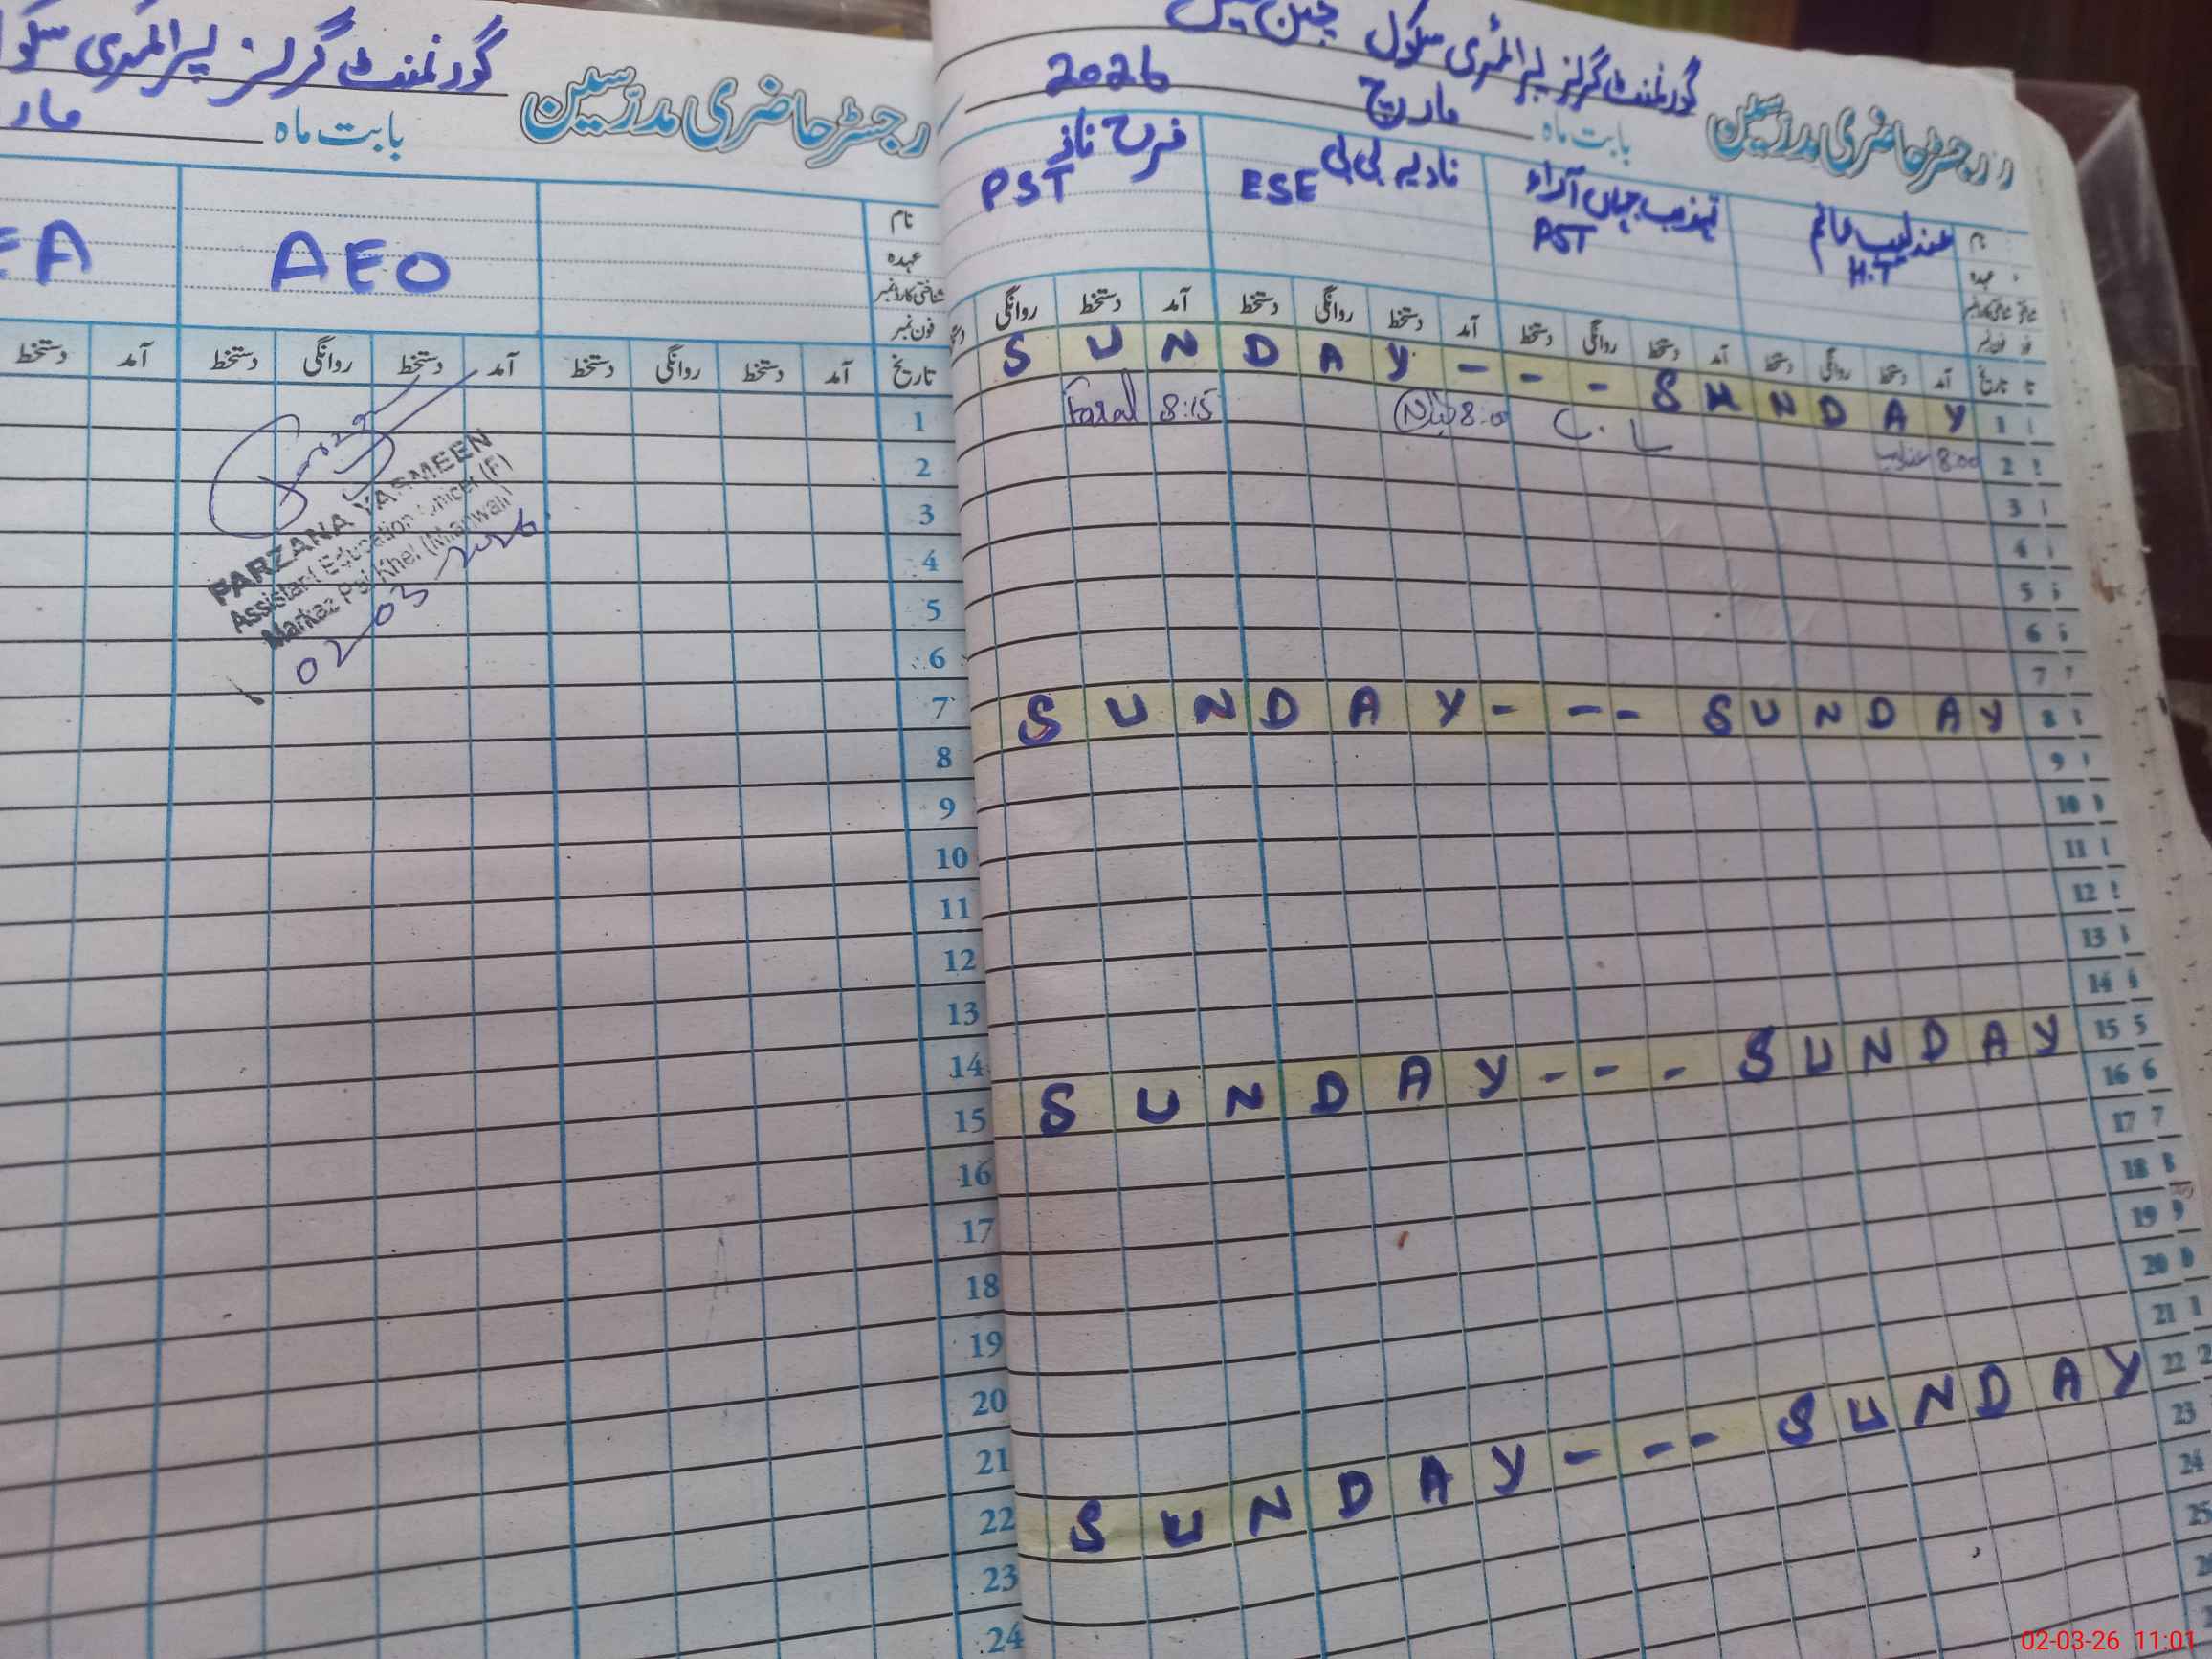 گورنمنٹ گرلز پرائمری سکول
رجسٹر حاضری مدرسین
بابت ماہ مار
نام
عہدہ
شناختی کارڈ نمبر
فون نمبر
AEO
تاریخ آمد دستخط روانگی دستخط آمد دستخط روانگی دستخط آمد دستخط
1
2
3
4
5
6
7
8
9
10
11
12
13
14
15
16
17
18
19
20
21
22
23
24
FARZANA YASMEEN
Assistant Education Officer (F)
Markaz Pai Khel (Mianwali)
02-03-2026
گورنمنٹ گرلز پرائمری سکول
رجسٹر حاضری مدرسین
بابت ماہ مارچ 2026
عندلیب H.T
تہذیب جہاں آراء PST
نادیہ بی بی ESE
فرح ناز PST
تاریخ آمد دستخط روانگی دستخط آمد دستخط روانگی دستخط آمد دستخط روانگی دستخط آمد دستخط روانگی
1 SUNDAY --- SUNDAY
2 8:00 عندلیب C.L 8:00 8:15
3
4
5
6
7
8 SUNDAY --- SUNDAY
9
10
11
12
13
14
15 SUNDAY --- SUNDAY
16
17
18
19
20
21
22 SUNDAY --- SUNDAY
23
24
25
02-03-26 11:01